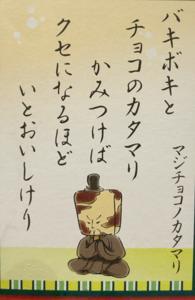 バキボキと
チョコのカタマリ
かみつけば
クセになるほど
いとおいしけり
マジチョコノカタマリ